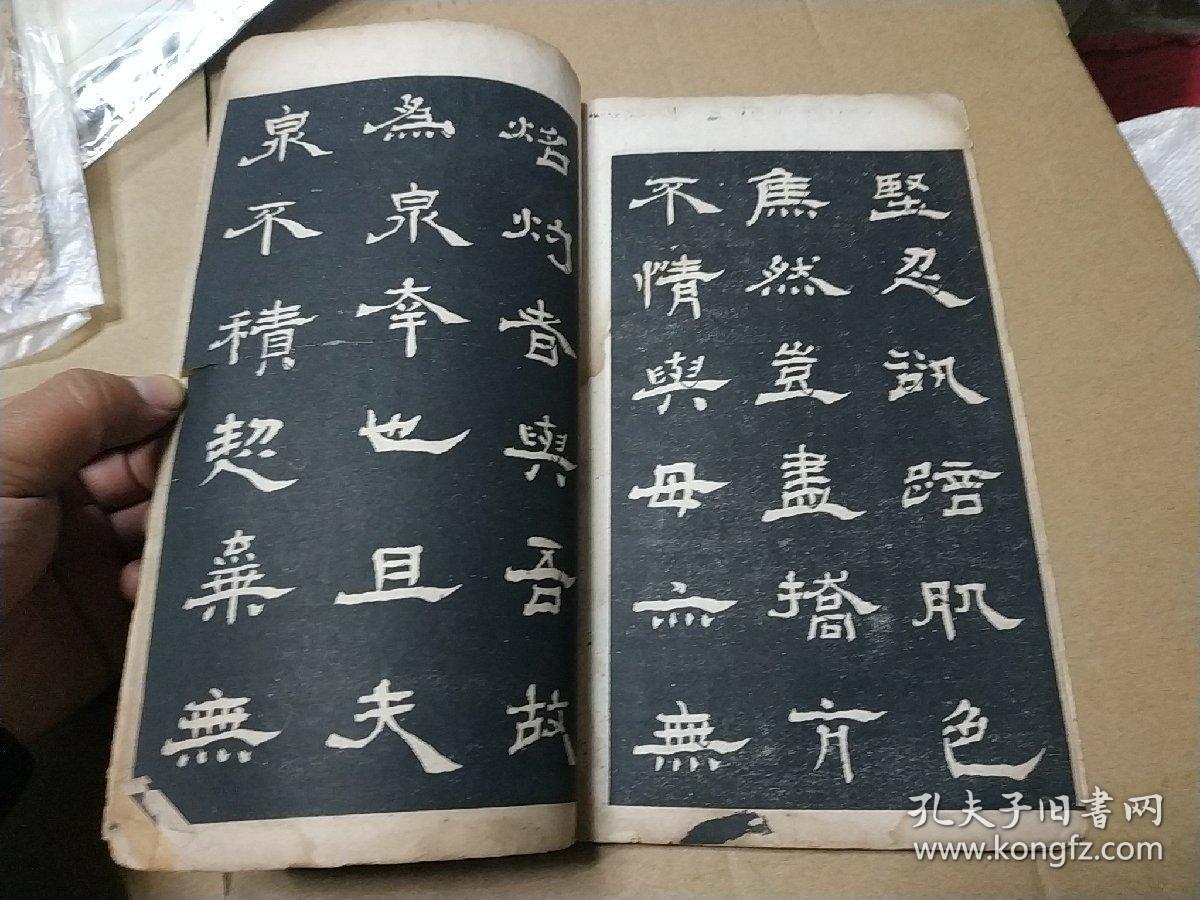 堅忍訊踣肌色
焦然豈盡撟亢
不情與毋亦無
焙灼者與吾故
為泉幸也且夫
泉不積棄無
孔夫子旧书网
www.kongfz.com